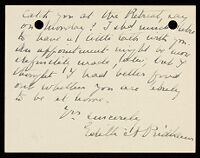 Catch you at the Retreat, say
on Monday? I shd much like
to have a little talk with you.
An appointment might be more
definitely made, later, but I
thought I had better find
out whether you are likely
to be at home.
Yrs sincerely
Estelle W